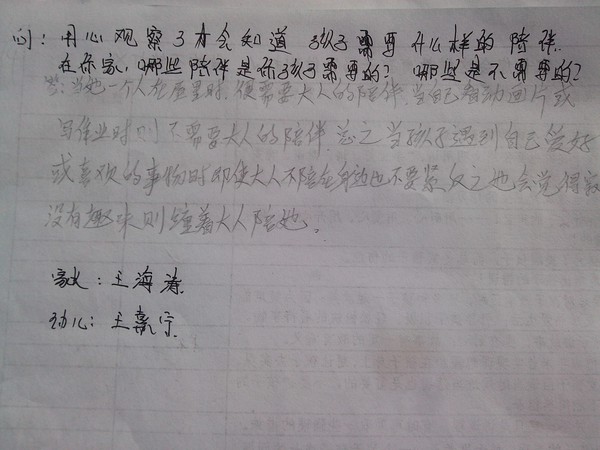 问：用心观察了才会知道孩子需要什么样的陪伴.
在你家，哪些陪伴是你孩子需要的？哪些是不需要的？
答：当她一个人在屋里时，很需要大人的陪伴，当自己看动画片或
写作业时则不需要大人的陪伴，总之当孩子遇到自己爱好
或喜欢的事物时即使大人不陪在身边也不要紧反之她会觉得寂
没有趣味则缠着大人陪她。
家长：王海涛
幼儿：王宁